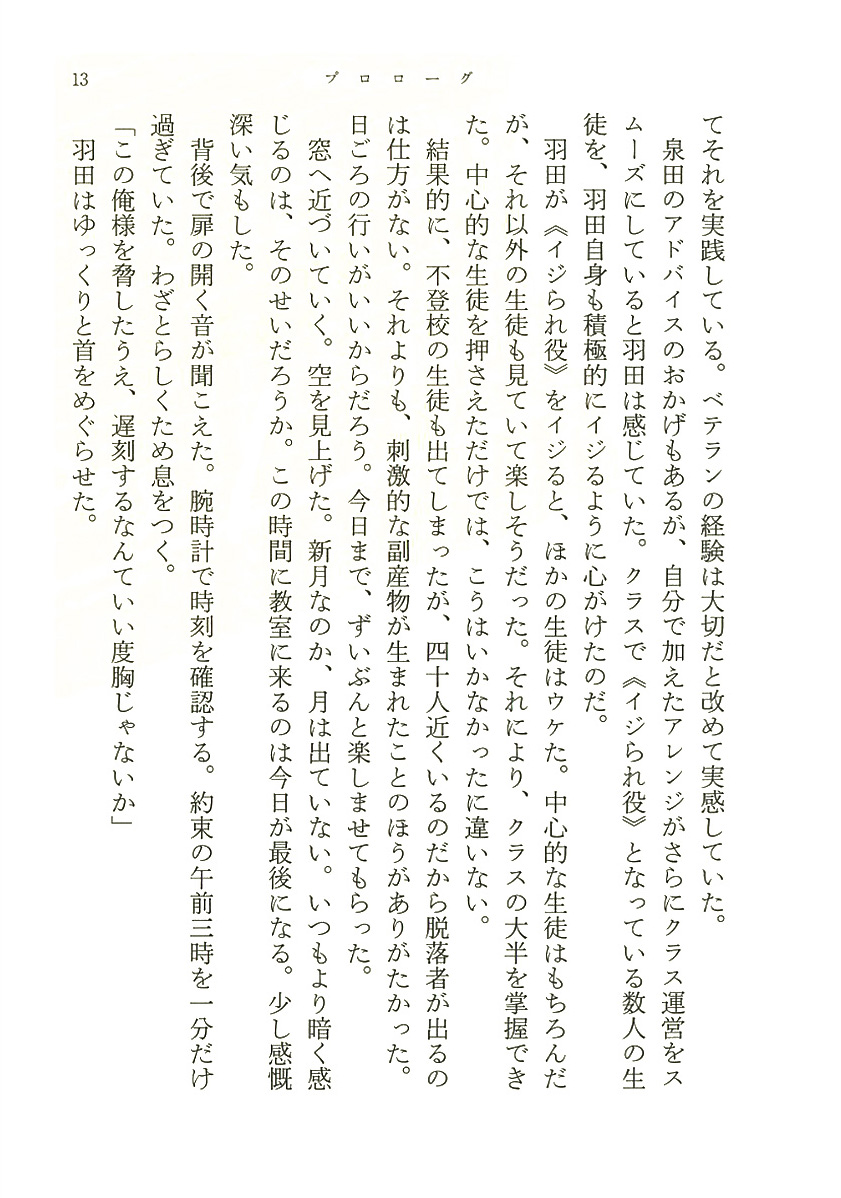 13
プロローグ
てそれを実践している。ベテランの経験は大切だと改めて実感していた。
泉田のアドバイスのおかげもあるが、自分で加えたアレンジがさらにクラス運営をス
ムーズにしていると羽田は感じていた。クラスで《イジられ役》となっている数人の生
徒を、羽田自身も積極的にイジるように心がけたのだ。
羽田が《イジられ役》をイジると、ほかの生徒はウケた。中心的な生徒はもちろんだ
が、それ以外の生徒も見ていて楽しそうだった。それにより、クラスの大半を掌握でき
た。中心的な生徒を押さえただけでは、こうはいかなかったに違いない。
結果的に、不登校の生徒も出てしまったが、四十人近くいるのだから脱落者が出るの
は仕方がない。それよりも、刺激的な副産物が生まれたことのほうがありがたかった。
日ごろの行いがいいからだろう。今日まで、ずいぶんと楽しませてもらった。
窓へ近づいていく。空を見上げた。新月なのか、月は出ていない。いつもより暗く感
じるのは、そのせいだろうか。この時間に教室に来るのは今日が最後になる。少し感慨
深い気もした。
背後で扉の開く音が聞こえた。腕時計で時刻を確認する。約束の午前三時を一分だけ
過ぎていた。わざとらしくため息をつく。
「この俺様を脅したうえ、遅刻するなんていい度胸じゃないか」
羽田はゆっくりと首をめぐらせた。